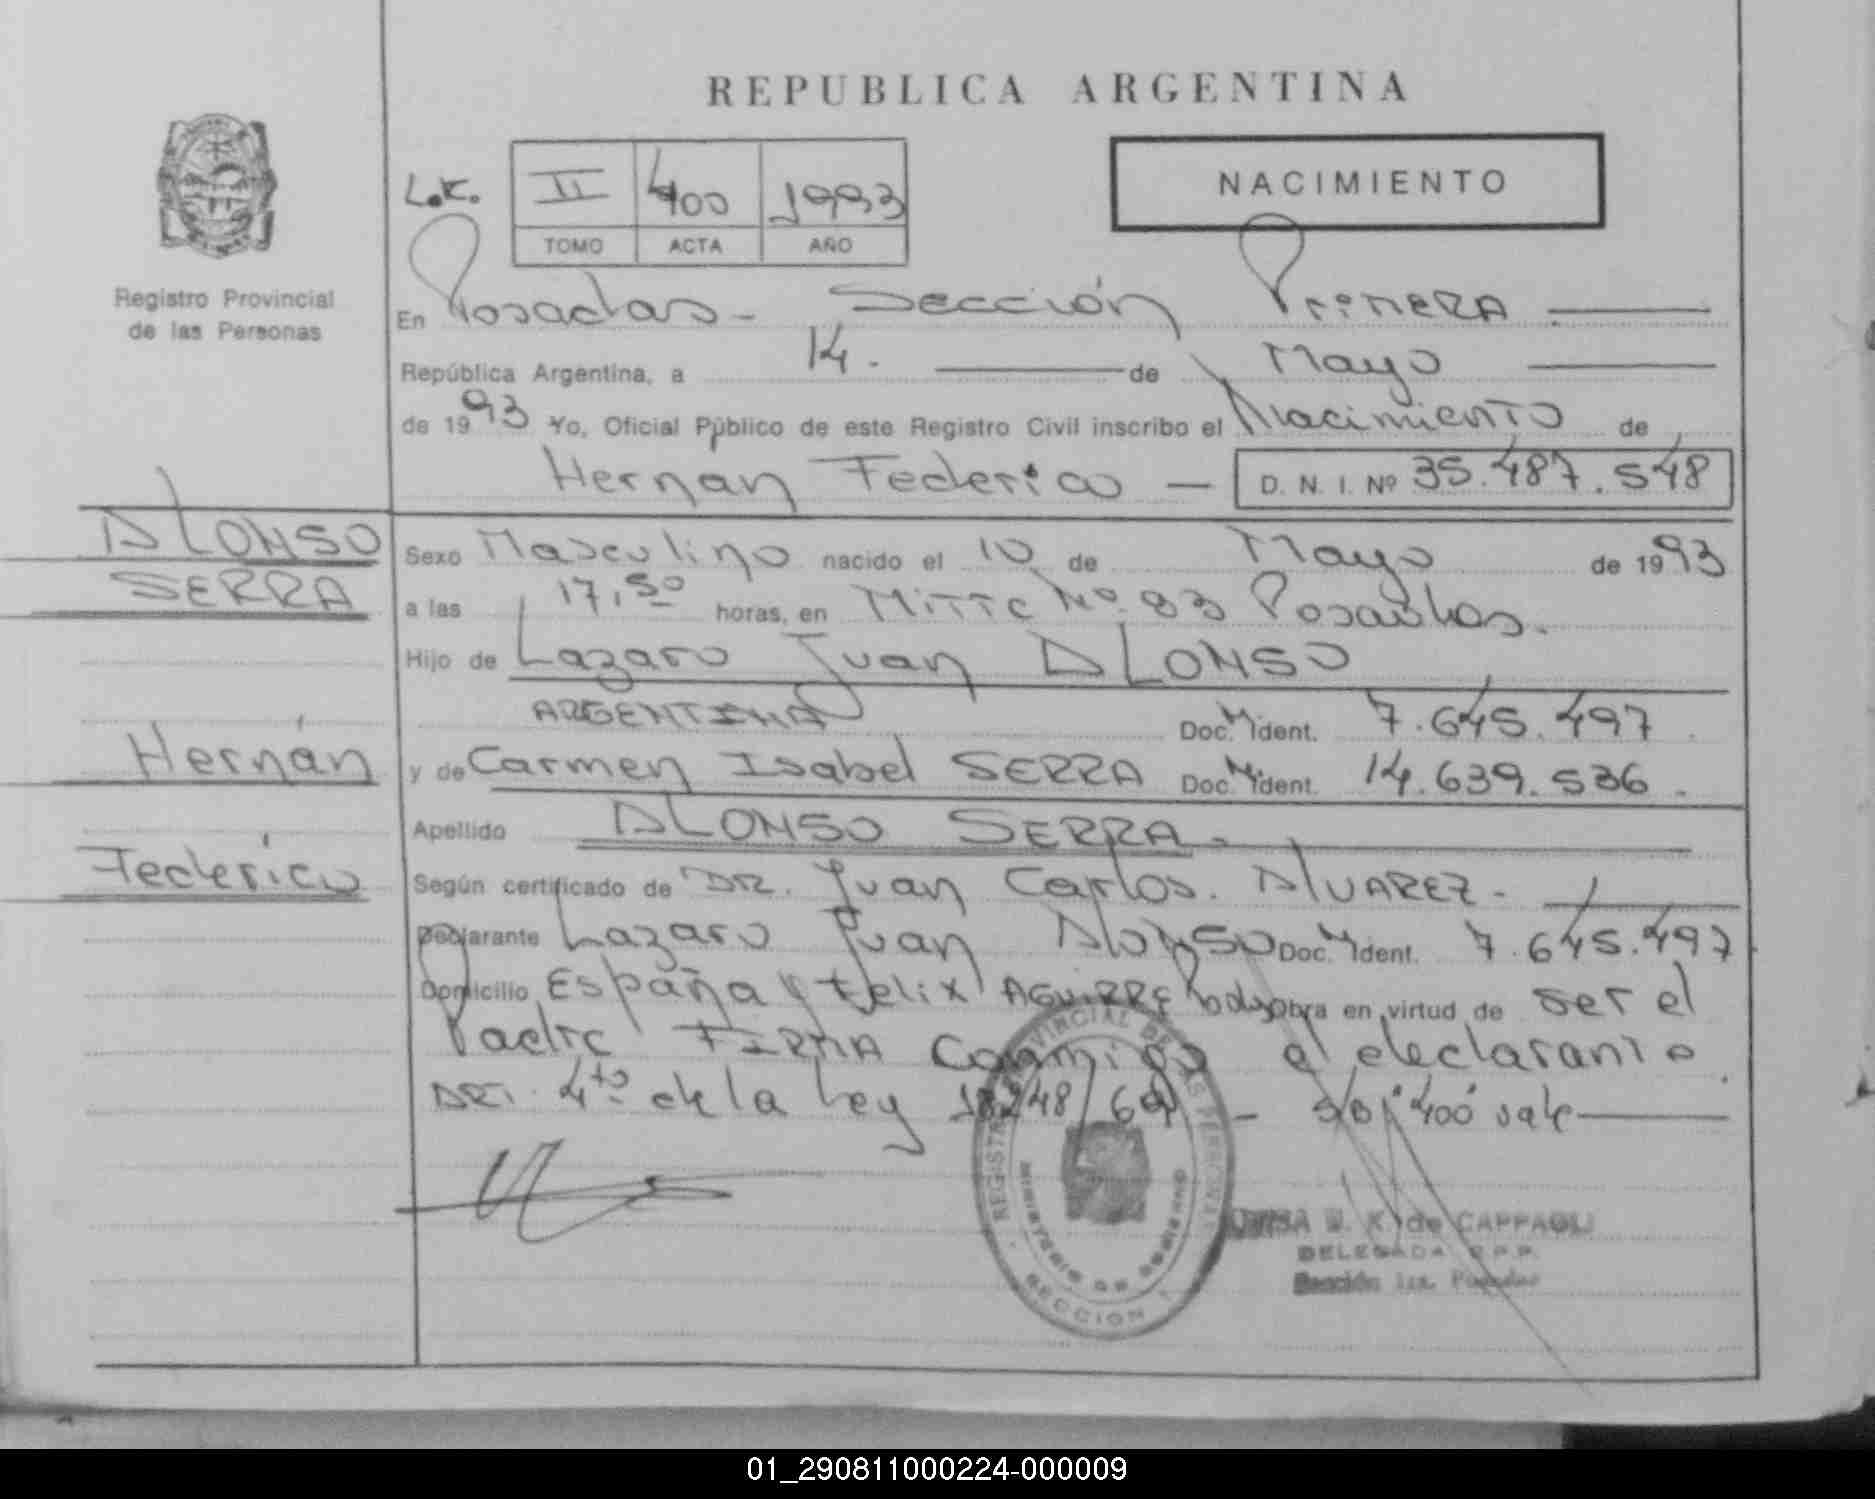 REPUBLICA ARGENTINA
NACIMIENTO
L.K.
II 400 1993
TOMO ACTA AÑO
Registro Provincial
de las Personas
En Posadas - Sección Primera
República Argentina, a 14. de Mayo
de 1993 Yo, Oficial Público de este Registro Civil inscribo el Nacimiento de
Hernan Federico — D. N. I. Nº 35.487.548
ALONSO
SERRA
Hernán
Federico
Sexo Masculino nacido el 10 de Mayo de 1993
a las 17,50 horas, en Mitre Nº 83 Posadas.
Hijo de Lazaro Juan ALONSO
ARGENTINA Doc. M. ident. 7.645.497
y de Carmen Isabel SERRA Doc. M. ident. 14.639.536.
Apellido ALONSO SERRA -
Según certificado de DR. Juan Carlos. AlVAREZ -
Declarante Lazaro Juan Alonso Doc. M. ident. 7.645.497
Domicilio España y Felix AGUIRRE obra en virtud de ser el
Padre FIRMA Conmigo el declarante
ART. 4to de la Ley 18248/69 - S/B "400" vale
REGISTRO PROVINCIAL DE LAS PERSONAS
MINISTERIO DE GOBIERNO
SECCION 1
K. de CAPPAGLI
DELEGADA R.P.P.
Sección 1ra. Posadas
01_290811000224-000009